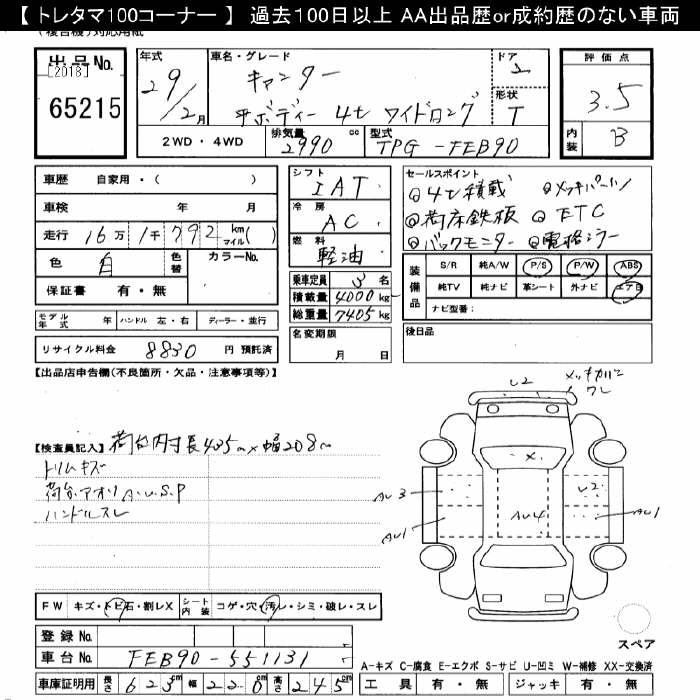 【 トレタマ100コーナー 】 過去100日以上 AA出品歴or成約歴のない車両
出品No. [2018] 65215
年式 29/2月
車名・グレード キャンター 平ボディー 4t ワイドロング
ドア 2
形状 T
評価点 3.5
内装 B
2WD・4WD 排気量 2990 cc 型式 TPG-FEB90
車歴 自家用・( )
車検 年 月
走行 16万1千792 km マイル( )
色 白 色替 カラーNo.
保証書 有・無
モデル年式 年 ハンドル 左・右 ディーラー・並行
リサイクル料金 8830 円 預託済
シフト IAT
冷房 AC
燃料 軽油
乗車定員 3名
積載量 4000 kg
総重量 7405 kg
名変期限 月 日
セールスポイント
◎4t積載 ◎メッキパーツ
◎荷床鉄板 ◎ETC
◎バックモニター ◎電格ミラー
装備品 S/R 純A/W P/S P/W ABS
純TV 純ナビ 革シート 外ナビ エアB
ナビ型番:
後日品
【出品店申告欄(不良箇所・欠品・注意事項等)】
【検査員記入】 荷台内寸長435cm×幅208cm
トリムキズ
荷台アオリA.U.S.P
ハンドルスレ
U2 メッキカバーワレ
X
AU3 U2
AU4
AU1 AU1
FW キズ・トビ石・割レX シート内装 コゲ・穴・汚レ・シミ・破レ・スレ
スペア
登録No.
車台No. FEB90-551131
車庫証明用 長さ 623cm 幅 220cm 高さ 245cm
A-キズ C-腐食 E-エクボ S-サビ U-凹ミ W-補修 XX-交換済
工具 有・無 ジャッキ 有・無